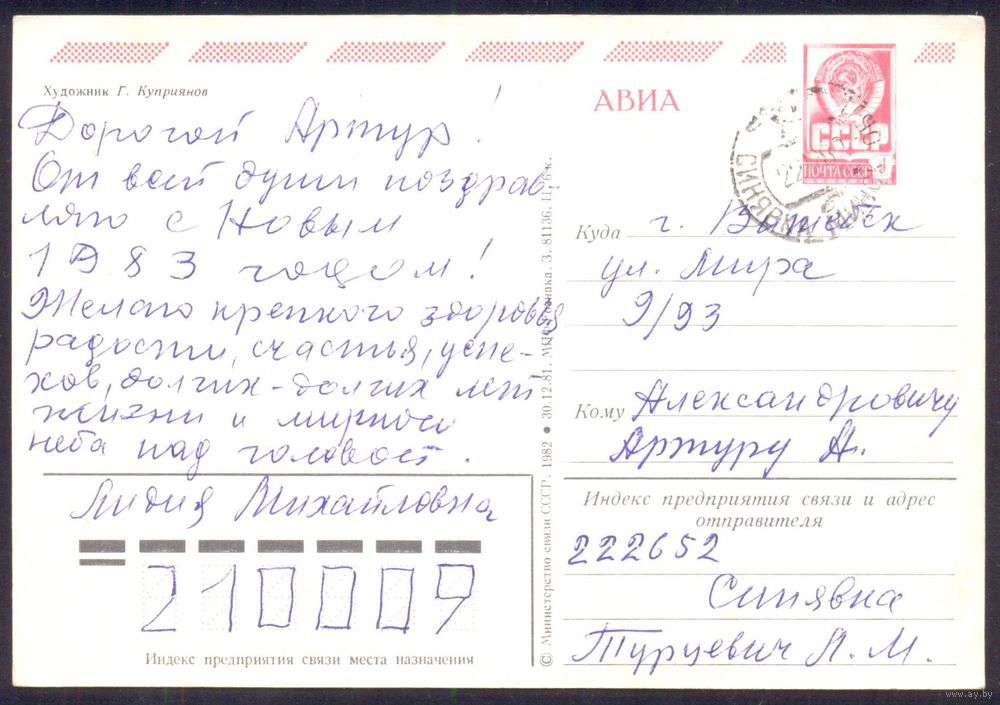 Художник Г. Куприянов
Дорогой Артур!
От всей души поздрав-
ляю с Новым
1983 годом!
Желаю крепкого здоровья
радости, счастья, успе-
хов, долгих-долгих лет
жизни и мирного
неба над головой.
Лидия Михайловна
210009
Индекс предприятия связи места назначения
© Министерство связи СССР. 1982 ● 30.12.81. З. 81136.
АВИА
СССР
ПОЧТА СССР
СИНЯВКА
Куда г. Витебск
ул. Мира
9/93
Кому Александровичу
Артуру А.
Индекс предприятия связи и адрес
отправителя
222652
Синявка
Турцевич Л. М.
www.ay.by